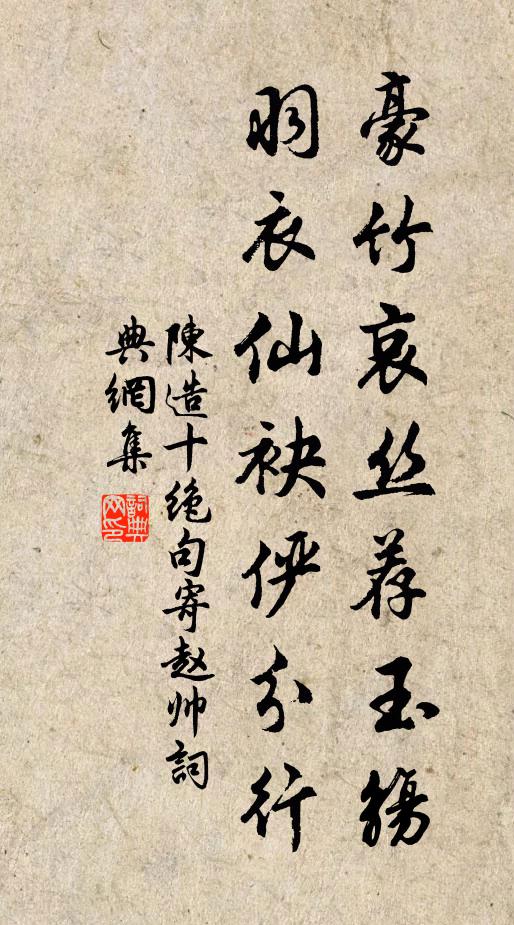 豪竹哀丝荐玉觞
羽衣仙袂俨分行
陳造十绝句寄赵帅詞
典網集
詞典網印